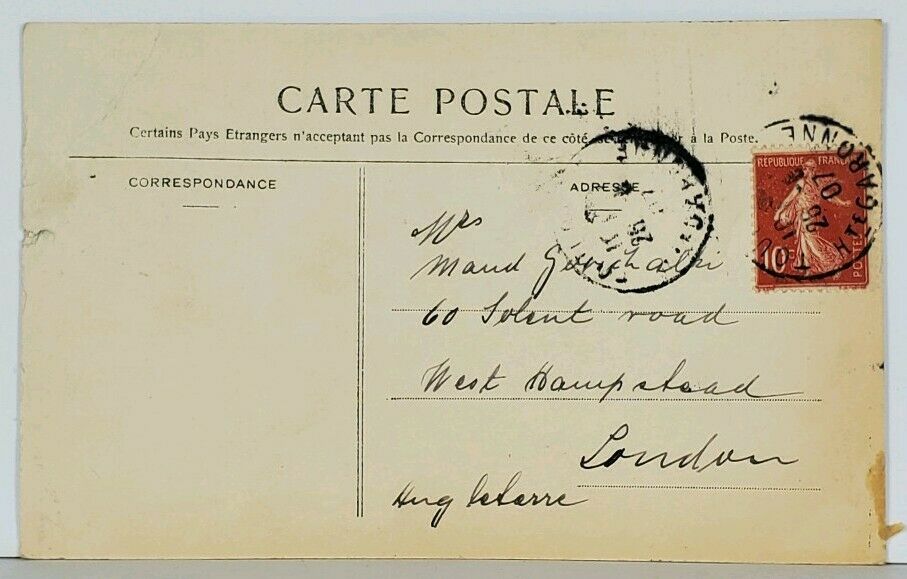 CARTE POSTALE
Certains Pays Etrangers n'acceptant pas la Correspondance de ce côté à la Poste.
CORRESPONDANCE
ADRESSE
REPUBLIQUE FRANC
10
POSTES
Hte GARONNE
26
07
26
Mrs
Maud
60 Solent road
West Hampstead
London
Angleterre